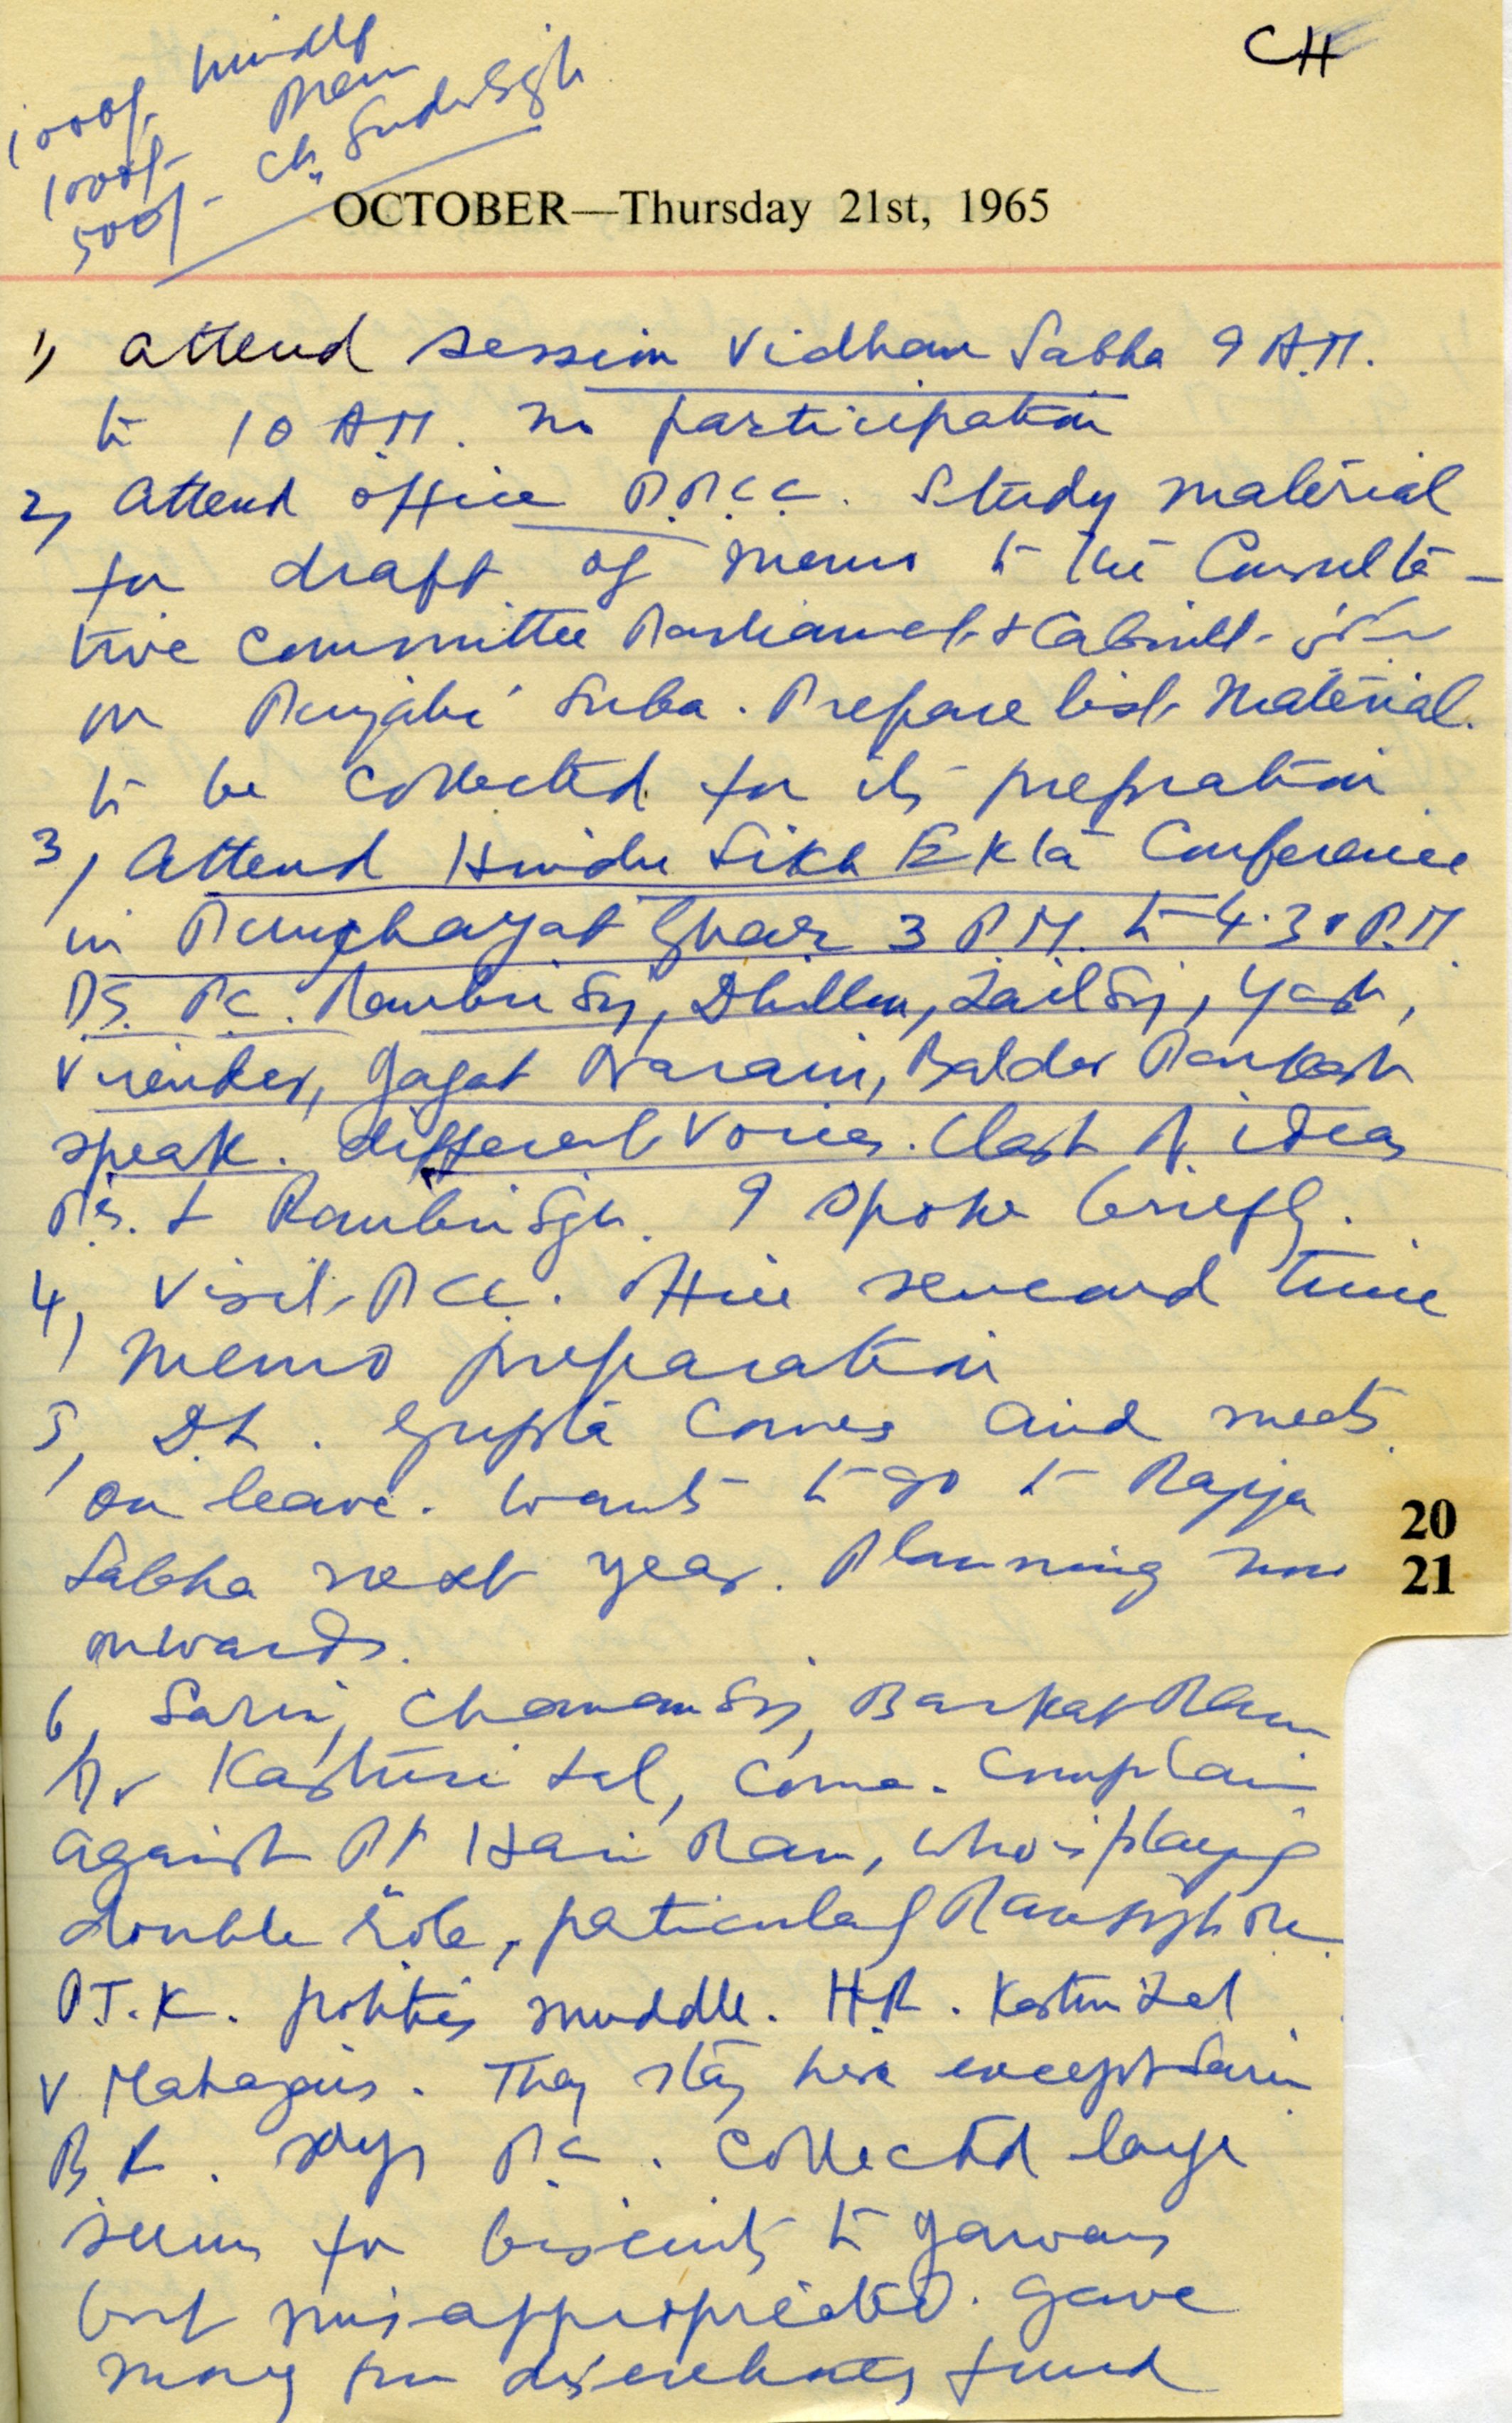 CH
1000/-
1000/- Mem
500/- Ch. Sudersigh
OCTOBER—Thursday 21st, 1965
1, Attend session Vidhan Sabha 9 A.M.
to 10 A.M. no participation
2, Attend office P.P.C.C. Study material
for draft of memo to the Consulta-
tive committee Parliament & Cabinet
on Punjabi Suba. Prepare list Material.
to be collected for its prepration
3, Attend Hindu Sikh Ekta Conference
in Punchayat Ghar 3 P.M. to 4.30 P.M.
P.S. P.C. Ranbir Sg, Dhillon, Zail Sg, Yash,
Virender, Jagat Narain, Baldev Parkash
speak. different voices. Clash of ideas
P.S. & Ranbir Sgh. I spoke briefly.
4, Visit PCC. office second time
Memo preparation
5, D.L. Gupta comes and meets
on leave. wants to go to Rajya
Sabha next year. Planning now
20
onwards.
21
6, Sarin, Chaman Sg, Barkat Ram
Dr Kasturi Lal, come. Complain
against Pt Hari Ram, who is playing
double role, particularly
P.T.K. politics muddle. H.R. Kasturi Lal
v Mahagus. They stay here except Sarin
B.R. says P.C. collected large
sums for biscuits to Jawans
but misappropriated. Gave
money from discretionary fund